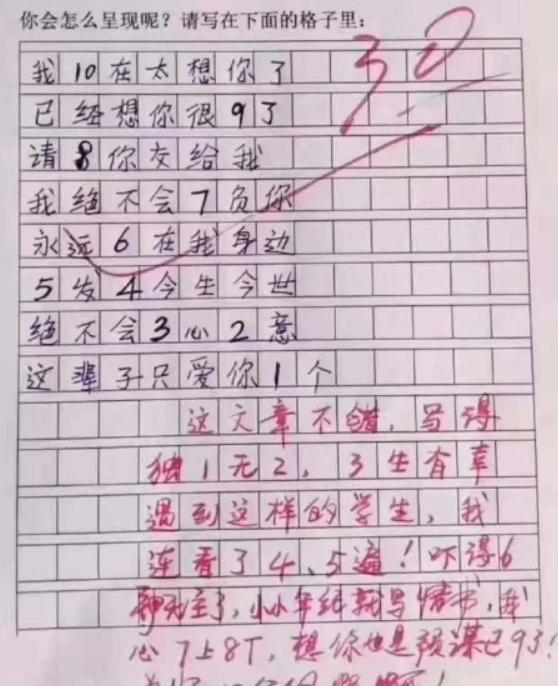 你会怎么呈现呢？请写在下面的格子里：
30
我10在太想你了
已经想你很9了
请8你交给我
我绝不会7负你
永远6在我身边
5发4今生今世
绝不会3心2意
这辈子只爱你1个
这文章不错，写得
独1无2，3生有幸
遇到这样的学生，我
连看了4、5遍！吓得6
神无主了，小小年纪就写情书，我
心7上8下，想你也是预谋已93！